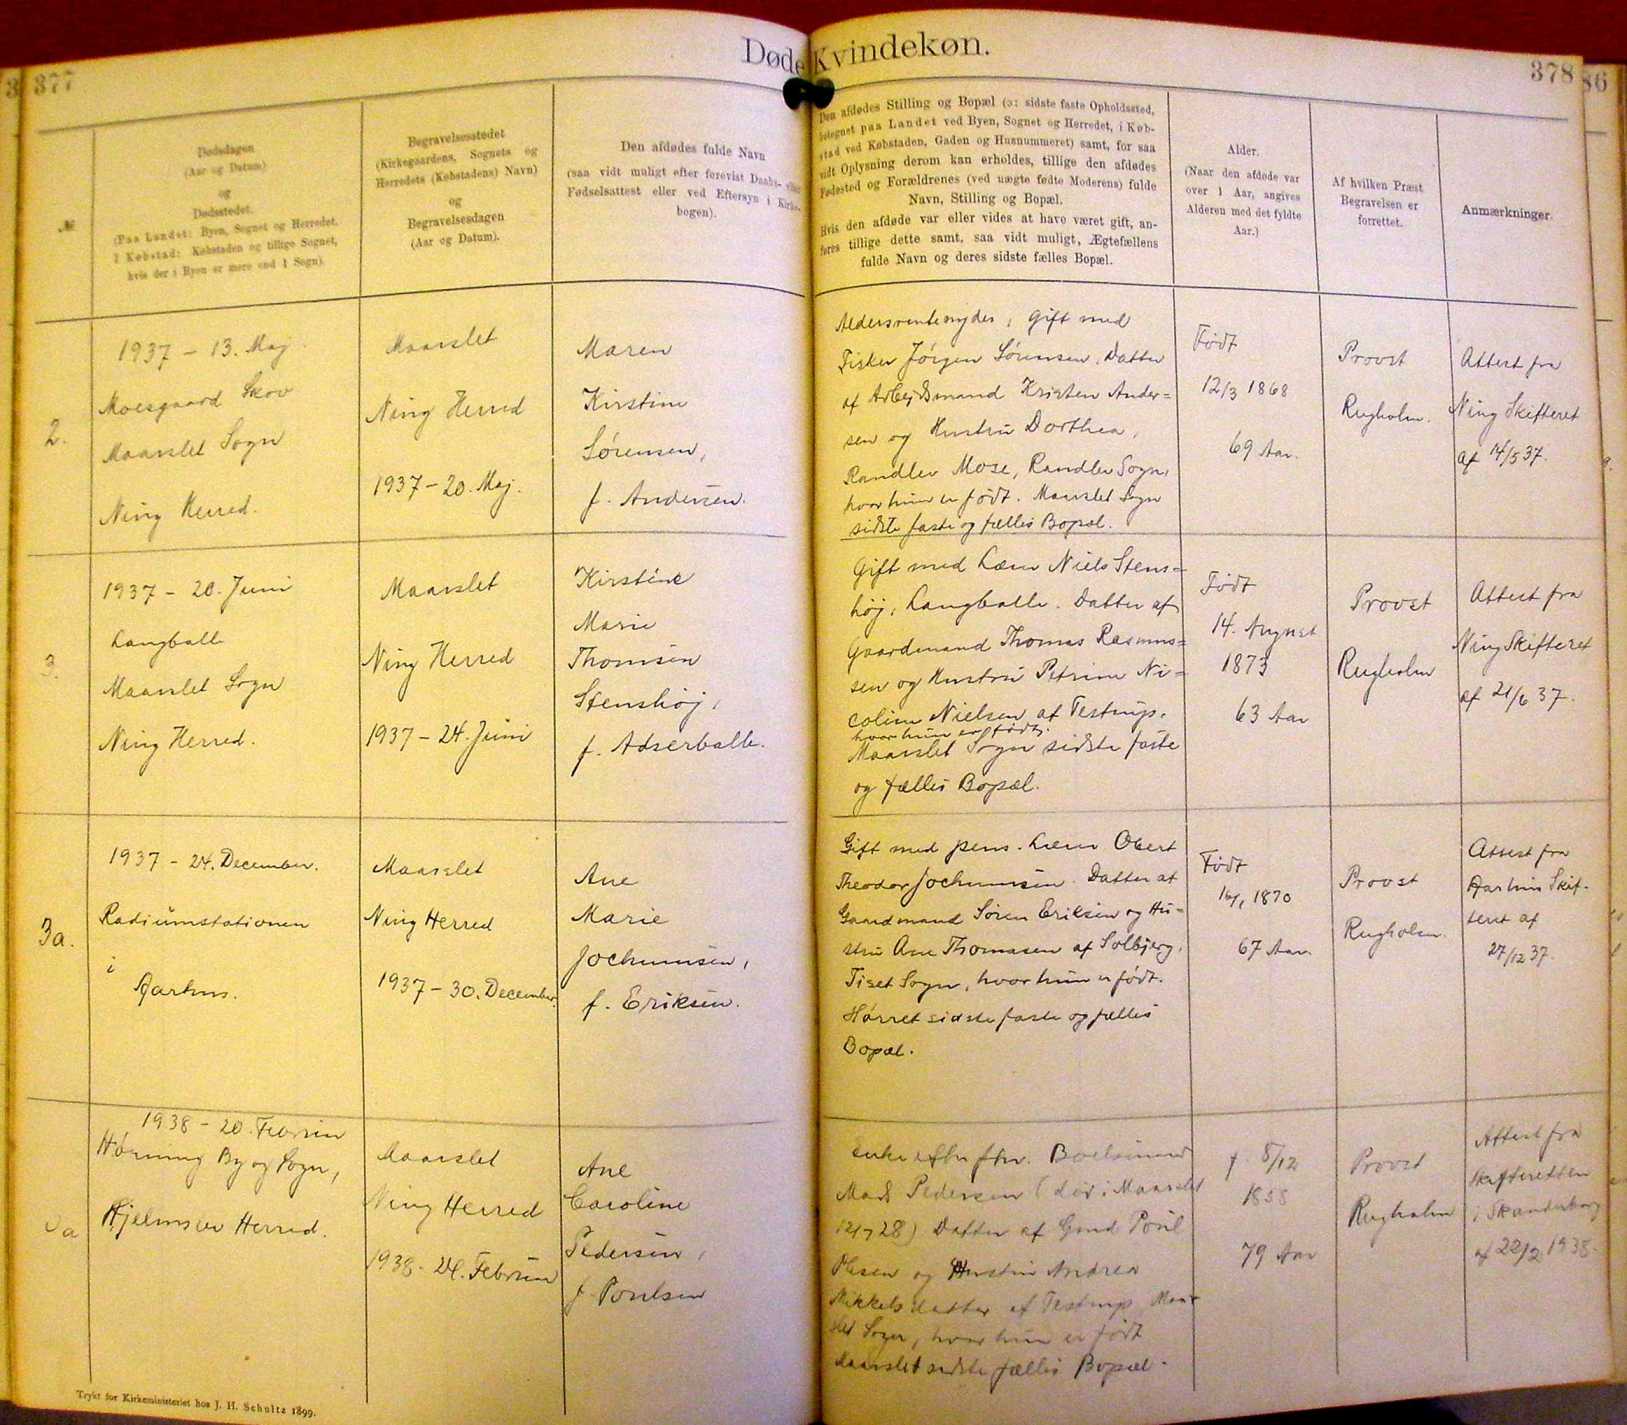 Døde Kvindekøn.
377
378
86
№
Dødsdagen
(Aar og Datum)
og
Dødsstedet.
(Paa Landet: Byen, Sognet og Herredet.
I Købstad: Købstaden og tillige Sognet,
hvis der i Byen er mere end 1 Sogn).
Begravelsesstedet
(Kirkegaardens, Sognets og
Herredets (Købstadens) Navn)
og
Begravelsesdagen
(Aar og Datum).
Den afdødes fulde Navn
(saa vidt muligt efter forevist Daabs- eller
Fødselsattest eller ved Eftersyn i Kirke-
bogen).
Den afdødes Stilling og Bopæl (ɔ: sidste faste Opholdssted,
betegnet paa Landet ved Byen, Sognet og Herredet, i Køb-
stad ved Købstaden, Gaden og Husnummeret) samt, for saa
vidt Oplysning derom kan erholdes, tillige den afdødes
Fødested og Forældrenes (ved uægte fødte Moderens) fulde
Navn, Stilling og Bopæl.
Hvis den afdøde var eller vides at have været gift, an-
føres tillige dette samt, saa vidt muligt, Ægtefællens
fulde Navn og deres sidste fælles Bopæl.
Alder.
(Naar den afdøde var
over 1 Aar, angives
Alderen med det fyldte
Aar.)
Af hvilken Præst
Begravelsen er
forrettet.
Anmærkninger.
2.
1937 - 13. Maj
Moesgaard Skov
Maarslet Sogn
Ning Herred.
Maarslet
Ning Herred
1937 - 20. Maj.
Maren
Kirstine
Sørensen,
f. Andersen.
Aldersrentenyder, gift med
Fisker Jörgen Sörensen. Datter
af Arbejdsmand Kristen Ander=
sen og Hustru Dorthea,
Randlev Mose, Randlev Sogn,
hvor hun er født. Maarslet Sogn
sidste faste og fælles Bopæl.
Født
12/3 1868
69 Aar.
Provst
Rugholm.
Attest fra
Ning Skifteret
af 14/5 37.
3.
1937 - 20. Juni
Langballe
Maarslet Sogn
Ning Herred.
Maarslet
Ning Herred
1937 - 24. Juni
Kirstine
Marie
Thomsen
Stenshöj,
f. Adserballe.
Gift med Lærer Niels Stens=
höj, Langballe. Datter af
Gaardmand Thomas Rasmus=
sen og Hustru Petrine Ni=
coline Nielsen af Testrup,
hvor hun er født.
Maarslet Sogn sidste faste
og fælles Bopæl.
Født
14. August
1873
63 Aar
Provst
Rugholm
Attest fra
Ning Skifteret
af 21/6 37.
3a.
1937 - 24. December.
Radiumstationen
i
Aarhus.
Maarslet
Ning Herred
1937 - 30. December.
Ane
Marie
Jochumsen,
f. Eriksen.
Gift med pens. Lærer Obert
Theodor Jochumsen. Datter af
Gaardmand Sören Eriksen og Hu=
stru Ane Thomasen af Solbjerg,
Tiset Sogn, hvor hun er født.
Hørret sidste faste og fælles
Bopæl.
Født
1870
67 Aar.
Provst
Rugholm.
Attest fra
Aarhus Skif-
teret af
27/12 37.
a
1938 - 20. Februar
Hørning By og Sogn,
Hjelmslev Herred.
Maarslet
Ning Herred
1938 - 24. Februar
Ane
Caroline
Pedersen,
f. Poulsen
Enke efter fhv. Boelsmand
Mads Pedersen (død i Maarslet
28) Datter af Gmd Poul
Olesen og Hustru Andrea
Mikkelsdatter af Testrup, Maar
slet Sogn, hvor hun er født
Maarslet sidste fælles Bopæl.
f. 8/12
1858
79 Aar
Provst
Rugholm
Attest fra
Skifteretten
i Skanderborg
af 22/2 1938.
Trykt for Kirkeministeriet hos J. H. Schultz 1899.